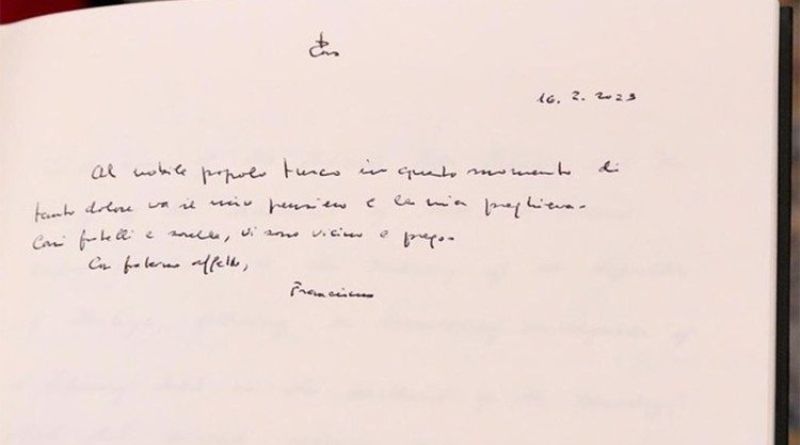 16.2.2023
Al nobile popolo turco in questo momento di
tanto dolore va il mio pensiero e la mia preghiera.
Cari fratelli e sorelle, vi sono vicino e prego.
Con fraterno affetto,
Franciscus